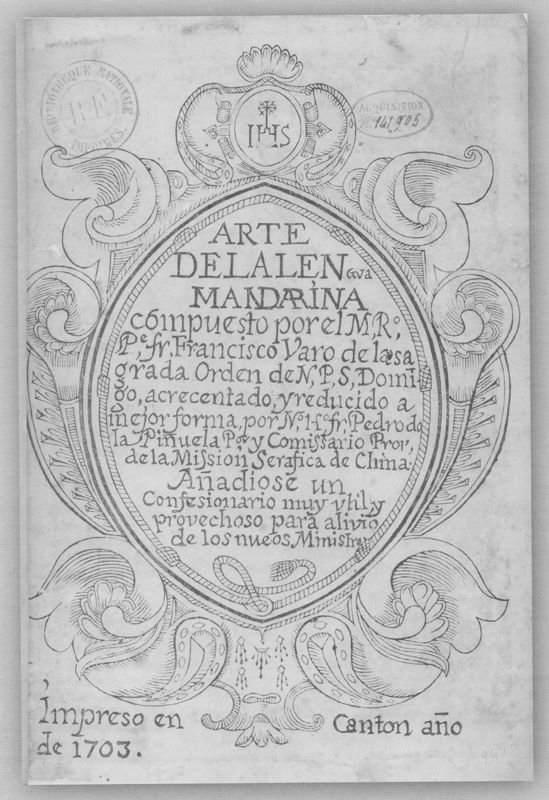 BIBLIOTHEQUE NATIONALE
R.F.
IMPRIMÉS
ACQUISITION
No 141905
IHS
ARTE
DE LA LEN gva
MANDARINA
cómpuesto por el M, Ro,
Pe, fr, Francisco Varo de la sa
grada Orden de N, P, S, Domi
go, acrecentado, y reducido a
mejor forma, por No, He, fr, Pedro de
la Piñuela Por y Comissario Prov,
de la Mission Serafica de China.
Añadiose un
Confesionario muy vtil, y
provechoso para alivio
de los nueos Ministros.
Impreso en Canton año
de 1703.